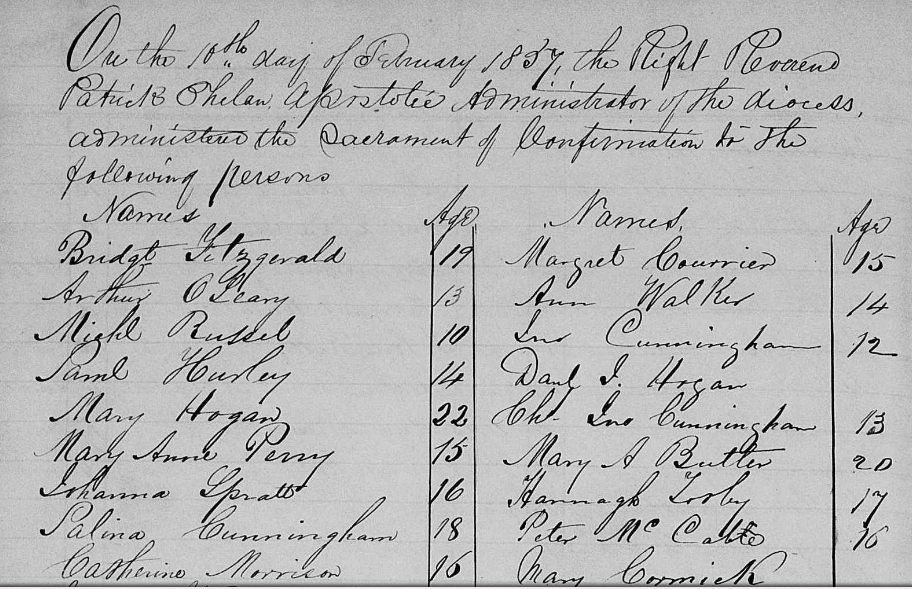 On the 10th day of February 1857, the Right Reverend
Patrick Phelan, Apostolic Administrator of the diocess,
administered the Sacrament of Confirmation to the
following persons
Names Age Names. Age
Bridgt Fitzgerald 19 Margret Courrier 15
Arthur O'Leary 13 Ann Walker 14
Michl Russel 10 Jno Cunningham 12
Saml Hurley 14 Danl J. Hogan
Mary Hogan 22 Chs. Jno Cunningham 13
Mary Anne Perry 15 Mary A Butler 20
Johanna Spratt 16 Hannagh 17
Salina Cunningham 18 Peter Mc Cabe 16
Catherine Morrison 16 Mary Cormick